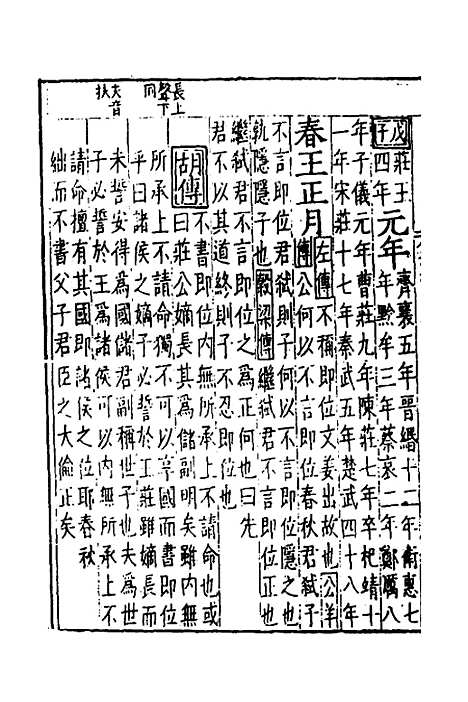 長上
聲下
同
夫音
扶
戊子
莊王
四年
元年
齊襄五年晉緡十二年衛惠七
年黔牟三年蔡哀二年鄭厲八
年子儀元年曹莊九年陳莊七年卒杞靖十
一年宋莊十七年秦武五年楚武四十八年
春王正月
左傳不稱即位文姜出故也公羊
傳公何以不言即位春秋君弒子
不言即位君弒則子何以不言即位隱之也
孰隱隱子也穀梁傳繼弒君不言即位正也
繼弒君不言即位之爲正何也曰先
君不以其道終則子不忍即位也
胡傳
不書即位内無所承上不請命也或
曰莊公嫡長其爲儲副明矣雖内無
所承上不請命獨不可以享國而書即位
乎曰諸侯之嫡子必誓於王莊雖嫡長而
未誓安得爲國儲君副稱世子也夫爲世
子必誓於王爲諸侯可以内無所承上不
請命擅有其國即諸侯之位耶春秋
絀而不書父子君臣之大倫正矣